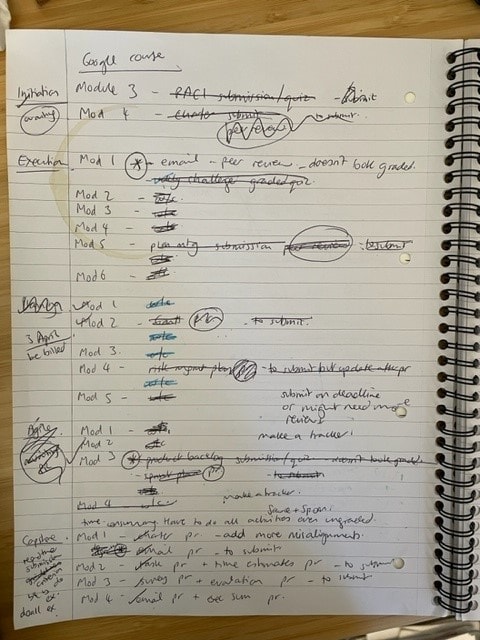 Google course
Initiation Module 3 - RACI submission/quiz - submit
Mod 4 - Charter submit - to submit.
peer review
Execution Mod 1 * - email - peer review - doesn't look graded.
wkly challenge graded quiz
Mod 2 - w/c
Mod 3 - w/c
Mod 4 - w/c
Mod 5 - submission peer review to submit
Mod 6 -
Mod 1 w/c
Mod 2 - pr - to submit.
3 April w/c
be billed Mod 3. w/c
Mod 4 - risk mgmt plan - to submit but update after pr
w/c
Mod 5 - w/c submit on deadline
or might need more
reviews
Agile. Mod 1 - w/c make a tracker!
Mod 2 - w/c
Mod 3 * product backlog submission/quiz - doesn't look grad
- pr - to submit
make a tracker.
Mod 4 - w/c Save + Spoon.
time consuming have to do all activities even ungraded.
Capstone Mod 1 charter pr. - add more misalignments.
email pr - to submit
submission Mod 2 - task pr + time estimates pr - to submit
Mod 3 - survey pr + evaluation pr - to submit
ex.
don't ex. Mod 4 - email pr + exec sum pr.